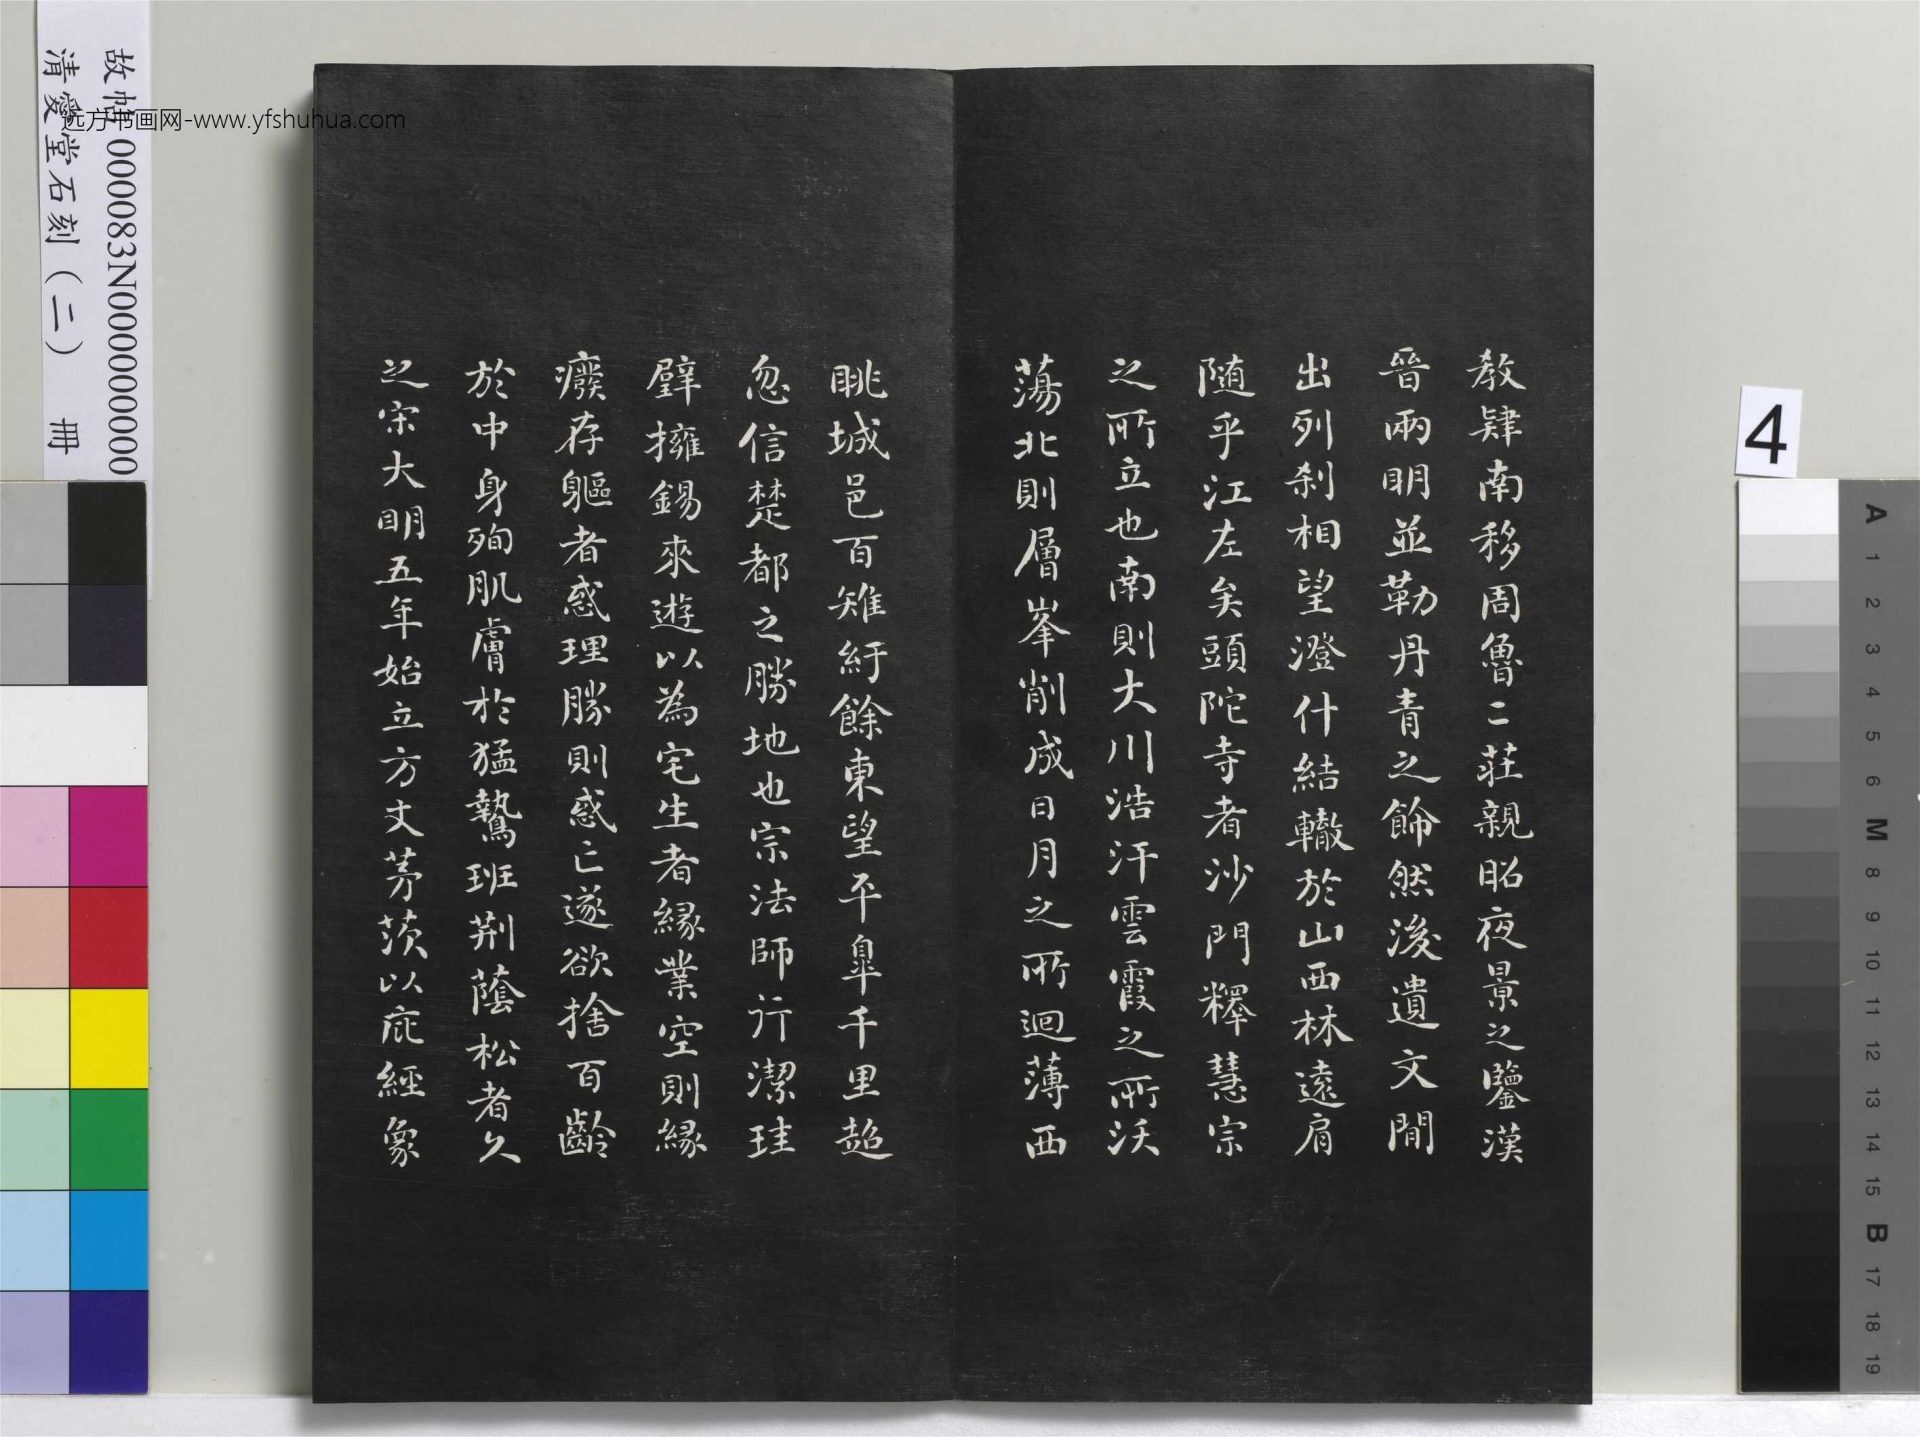 教肄南移周魯二莊親昭夜景之鑒漢
晉兩明並勒丹青之飾然後遺文間
出列刹相望澄什結轍於山西林遠肩
随乎江左矣頭陀寺者沙門釋慧宗
之所立也南則大川浩汗雲霞之所沃
蕩北則層峯削成日月之所迴薄西
眺城邑百雉紆餘東望平皐千里超
忽信楚都之勝地也宗法師行潔珪
璧擁錫來遊以為宅生者緣業空則緣
癈存軀者惑理勝則惑亡遂欲捨百齡
於中身殉肌膚於猛鷙班荆蔭松者久
之宋大明五年始立方丈茅茨以庇經象
故帖 000083N000000000
清愛堂石刻(二) 冊
远方书画网-www.yfshuhua.com
4
A
1
2
3
4
5
6
M
8
9
10
11
12
13
14
15
B
17
18
19